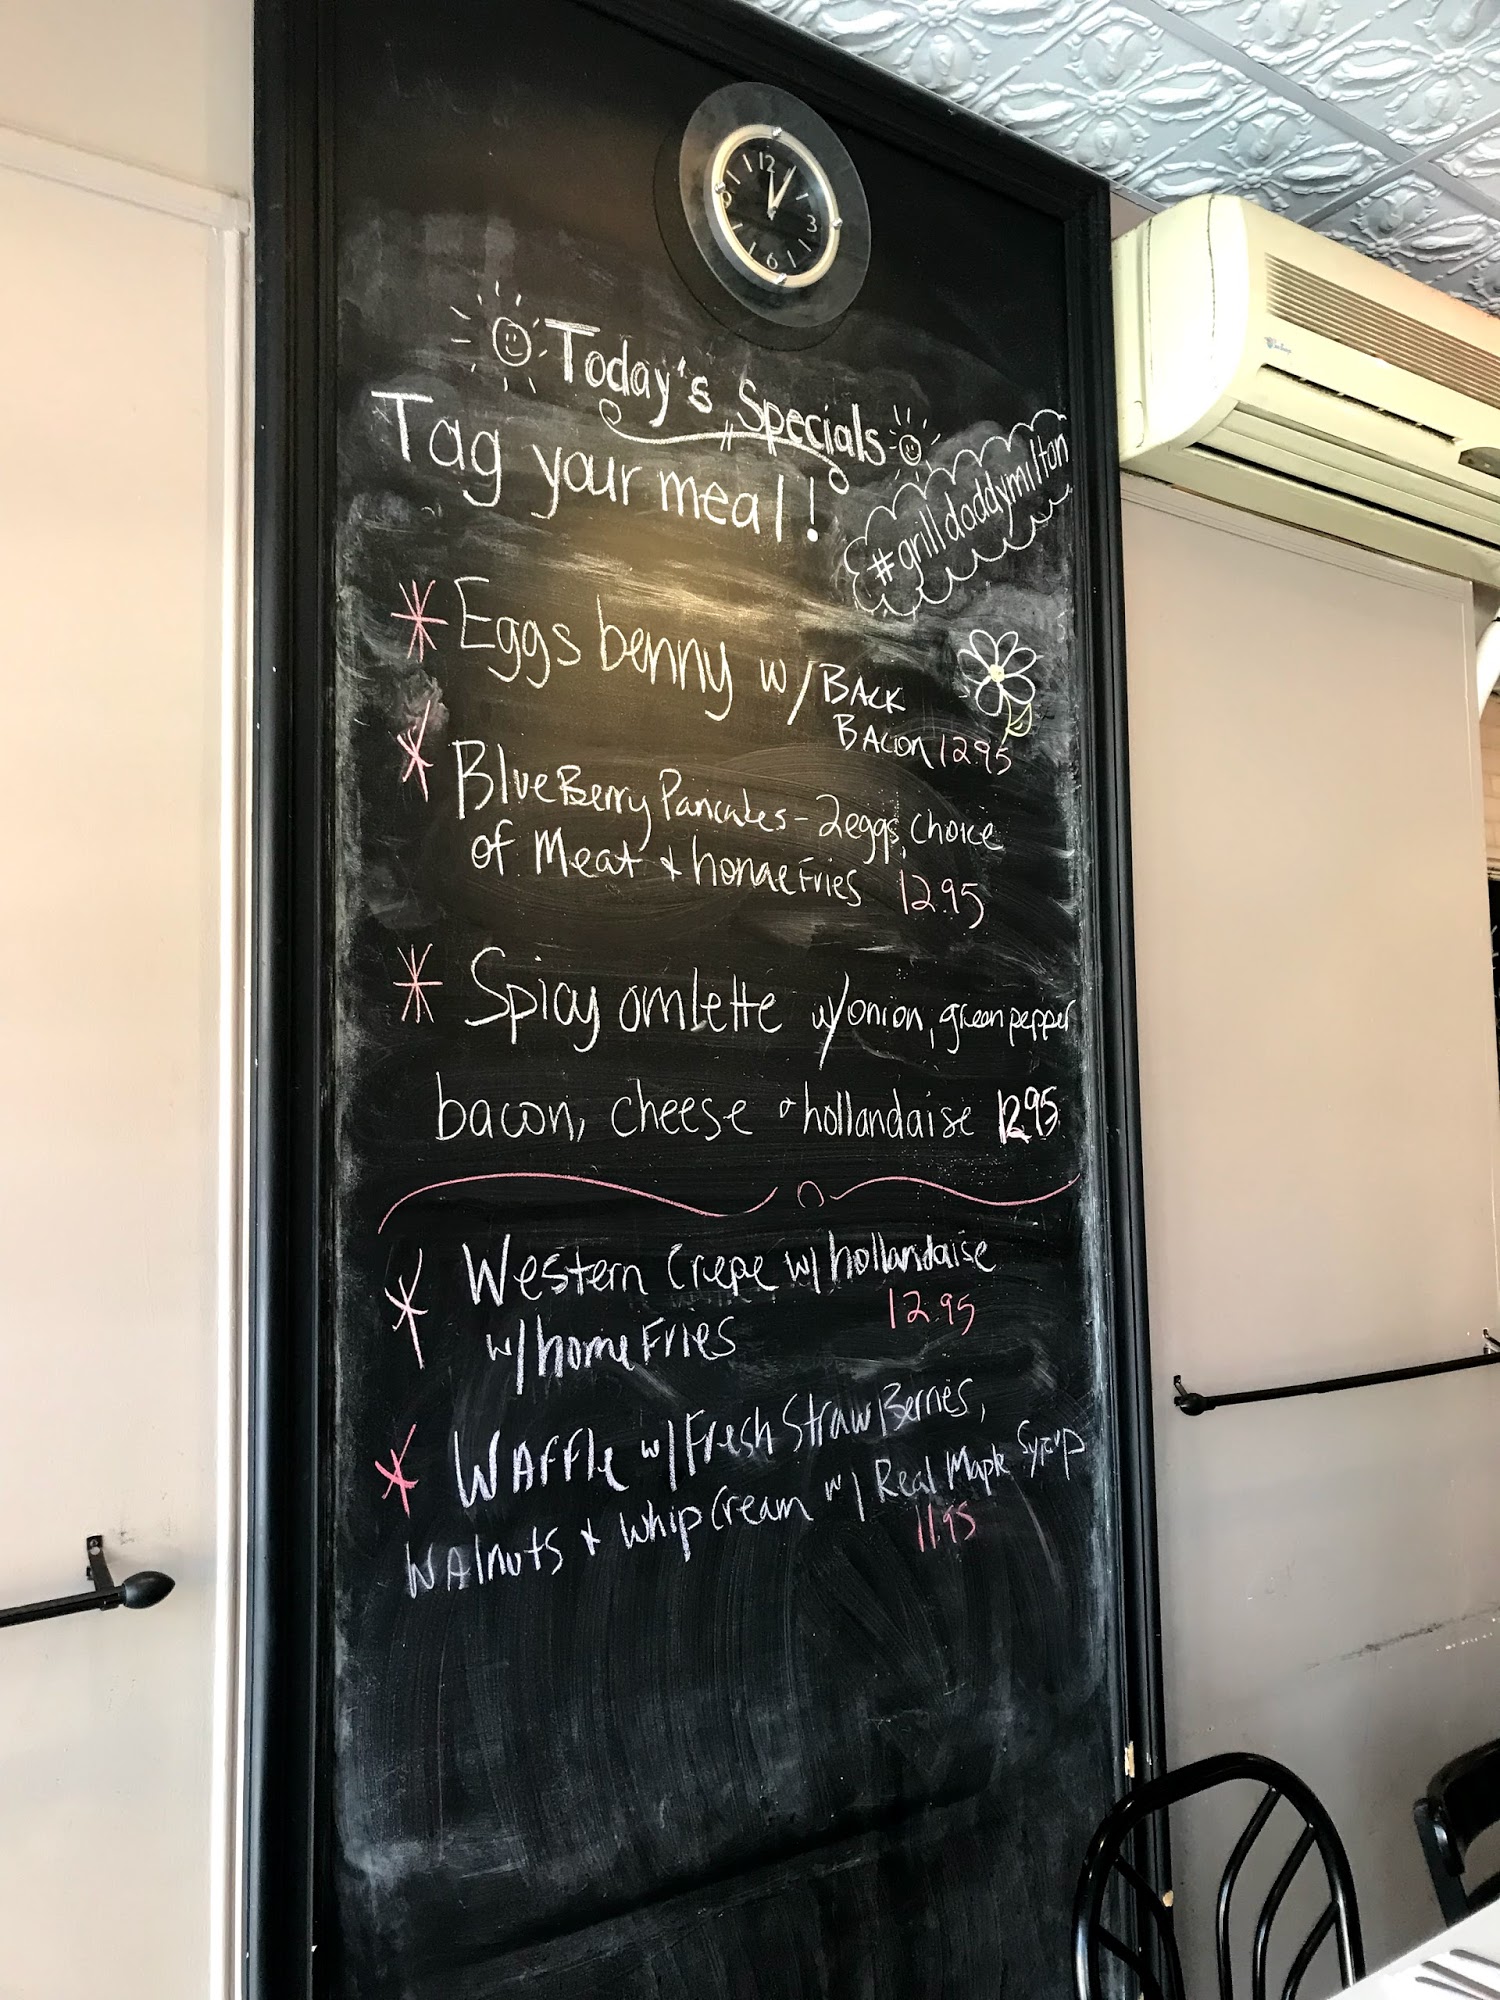 12
3
6
Today's Specials
Tag your meal!
#grilldaddymilton
Eggs benny w/ BACK
BACON 12.95
BlueBerry Pancakes - 2eggs, choice
of Meat + homeFries 12.95
Spicy omlette w/onion, green pepper
bacon, cheese & hollandaise 12.95
Western Crepe w/ hollandaise
w/ homeFries 12.95
WAffle w/ Fresh StrawBerries,
WAlnuts + whip Cream w/ Real Maple Syrup
11.95